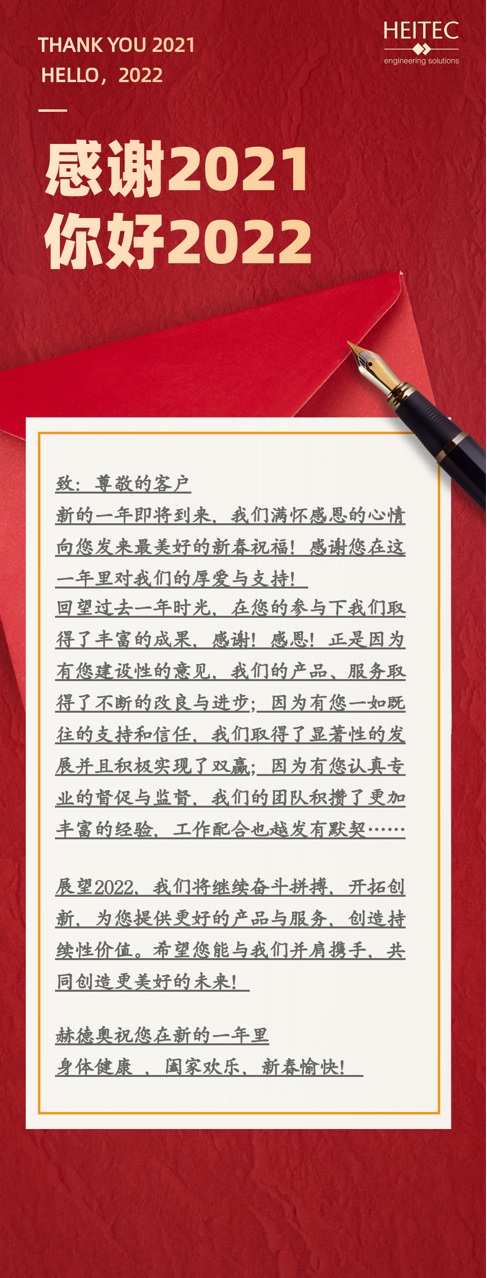 THANK YOU 2021
HELLO，2022
HEITEC
engineering solutions
感谢2021
你好2022
致：尊敬的客户
新的一年即将到来，我们满怀感恩的心情
向您发来最美好的新春祝福！感谢您在这
一年里对我们的厚爱与支持！
回望过去一年时光，在您的参与下我们取
得了丰富的成果，感谢！感恩！正是因为
有您建设性的意见，我们的产品、服务取
得了不断的改良与进步；因为有您一如既
往的支持和信任，我们取得了显著性的发
展并且积极实现了双赢；因为有您认真专
业的督促与监督，我们的团队积攒了更加
丰富的经验，工作配合也越发有默契……
展望2022，我们将继续奋斗拼搏，开拓创
新，为您提供更好的产品与服务，创造持
续性价值。希望您能与我们并肩携手，共
同创造更美好的未来！
赫德奥祝您在新的一年里
身体健康 ，阖家欢乐，新春愉快！